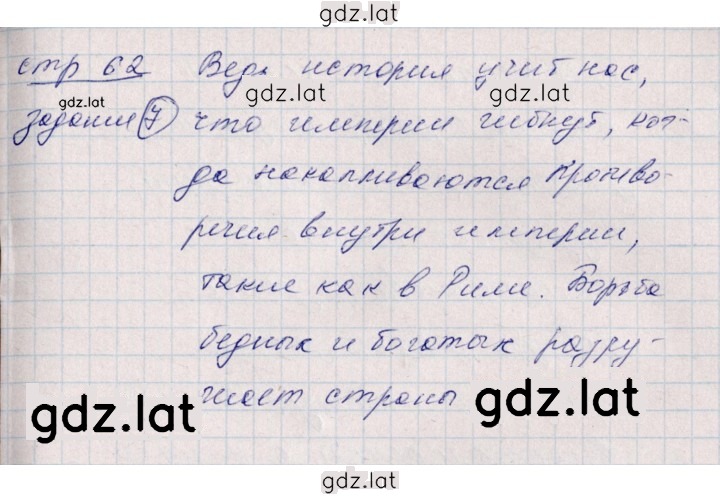 gdz.lat
стр 62 Ведь история учит нас,
gdz.lat gdz.lat gdz.lat
задание 7 что империи гибнут, ког-
да накапливаются противо-
речия внутри империи,
такие как в Риме. Борьба
бедных и богатых разру-
шает страны
gdz.lat gdz.lat
gdz.lat